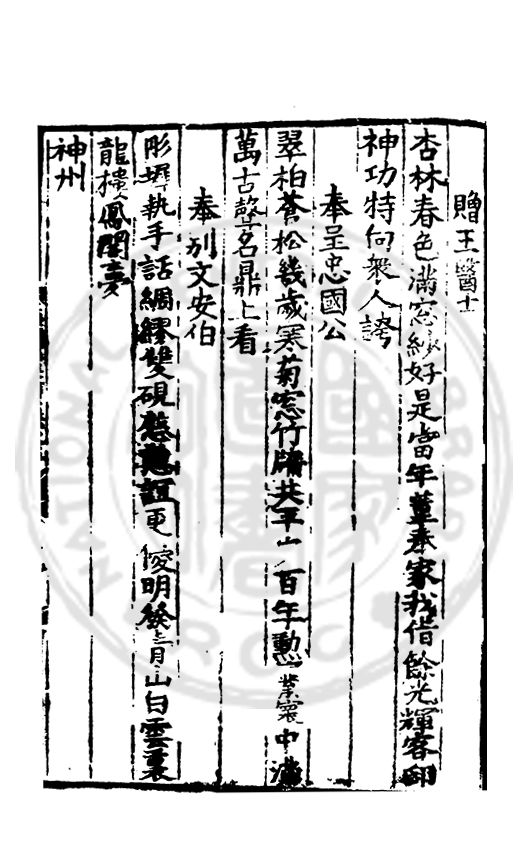 贈王醫士
杏林春色滿窓紗好是當年董奉家我借餘光輝客邸
神功特向衆人誇
奉呈忠國公
翠柏蒼松幾歲寒菊窓竹牖共平山百年勳業寰中滿
萬古聲名鼎上看
奉別文安伯
彤墀執手話綢繆雙硯慇懃誼更優明發三月山白雲裏
龍樓鳳閣夢
神州